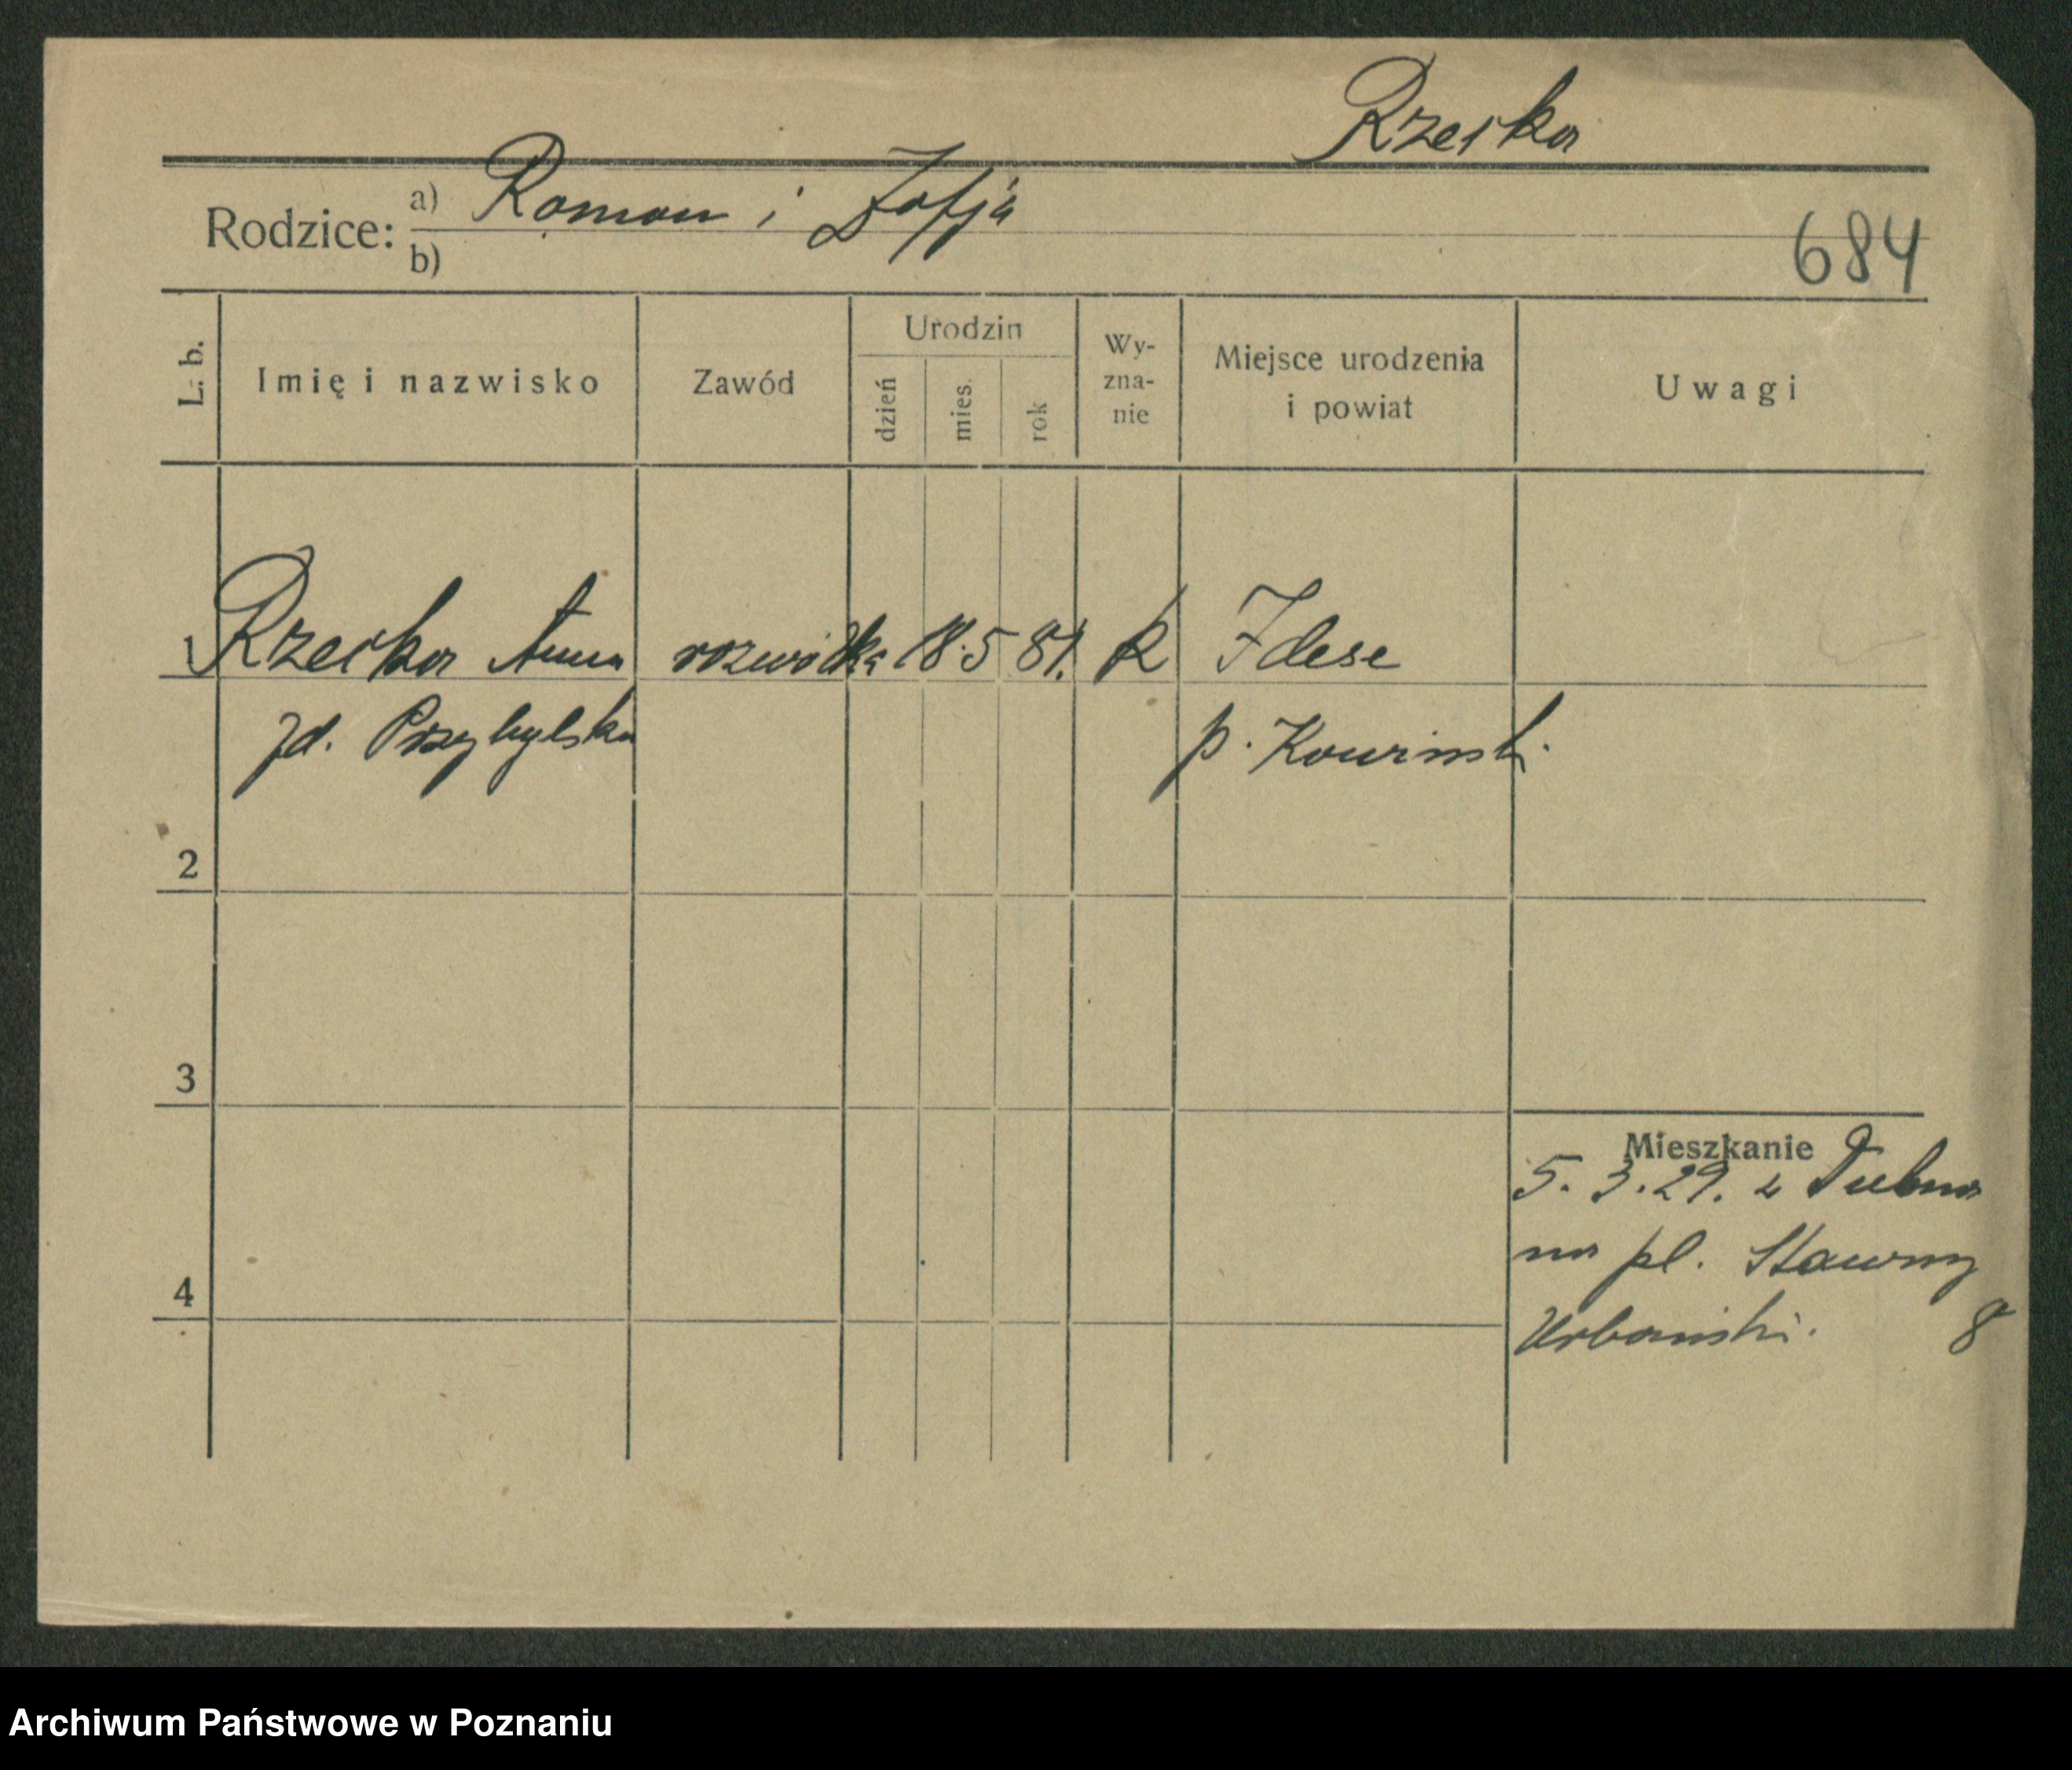 Rzeska
Rodzice: a) Roman i Zofja
b)
684
L. b.
Imię i nazwisko
Zawód
Urodzin
dzień
mies.
rok
Wy-
zna-
nie
Miejsce urodzenia
i powiat
Uwagi
1 Rzeska Anna rozwódka 18. 5 81. K
zd. Przybylska
p.
2
3
4
Mieszkanie
5. 3. 29. z
na pl. Stawny
Urbański. 8
Archiwum Państwowe w Poznaniu